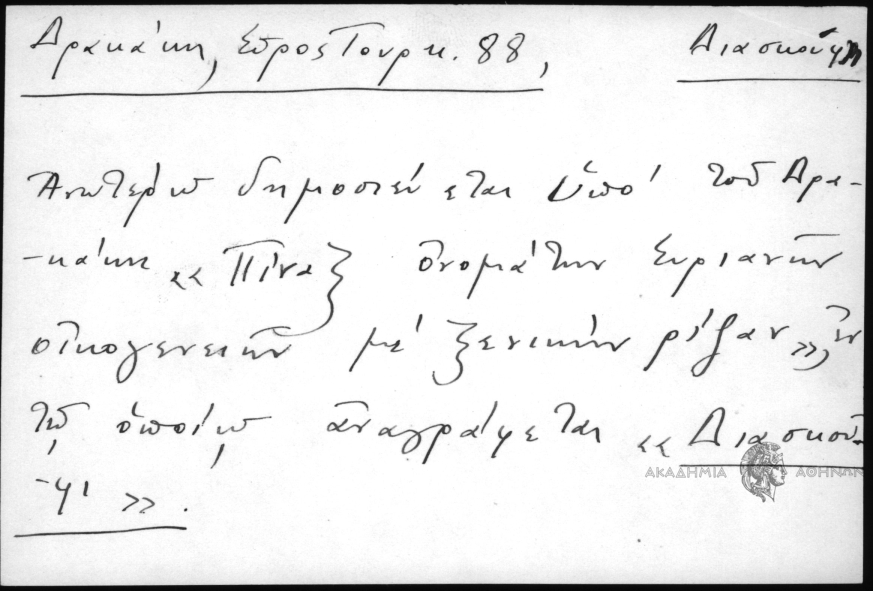 Δρακάκη, Σῦρος Τουρκ. 88, Διασκούφη
Ἀνωτέρω δημοσιεύεται ὑπὸ τοῦ Δρα-
-κάκη «Πίναξ ὀνομάτων Συριανῶν
οἰκογενειῶν μὲ ξενικὴν ρίζαν», ἐν
τῷ ὁποίῳ ἀναγράφεται «Διασκού-
ΑΚΑΔΗΜΙΑ ΑΘΗΝΩΝ
-φι».